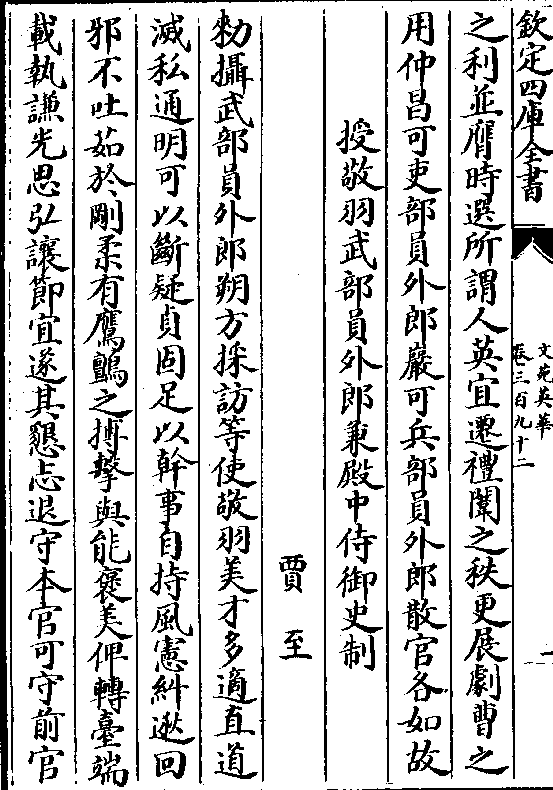 欽定四庫全書
文苑英華
卷三百九十二
一
之利並膺時選所謂人英宜遷禮闈之秩更展劇曹之
用仲昌可吏部員外郎嚴可兵部員外郎散官各如故
授敬羽武部員外郎兼殿中侍御史制
賈至
勑攝武部員外郎朔方採訪等使敬羽美才多適直道
滅私通明可以斷疑貞固足以幹事自持風憲糾逖回
邪不吐茹於剛柔有鷹鸇之搏擊與能褒美俾轉臺端
載執謙光思弘讓節宜遂其懇志退守本官可守前官